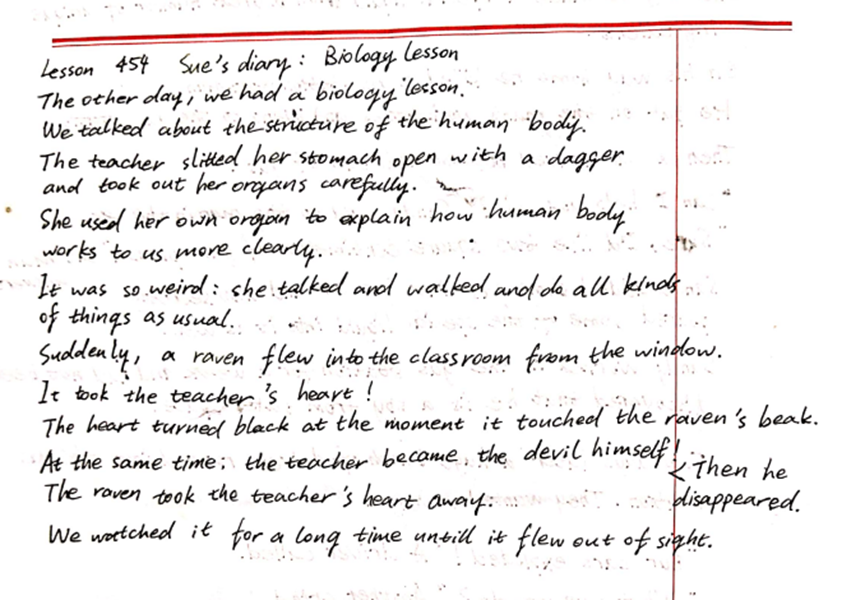 Lesson 454 Sue's diary: Biology Lesson
The other day, we had a biology lesson.
We talked about the structure of the human body.
The teacher slitted her stomach open with a dagger
and took out her organs carefully.
She used her own organ to explain how human body
works to us more clearly.
It was so weird: she talked and walked and do all kinds
of things as usual.
Suddenly, a raven flew into the classroom from the window.
It took the teacher's heart!
The heart turned black at the moment it touched the raven's beak.
At the same time; the teacher became the devil himself!
< Then he
disappeared.
The raven took the teacher's heart away.
We watched it for a long time untill it flew out of sight.